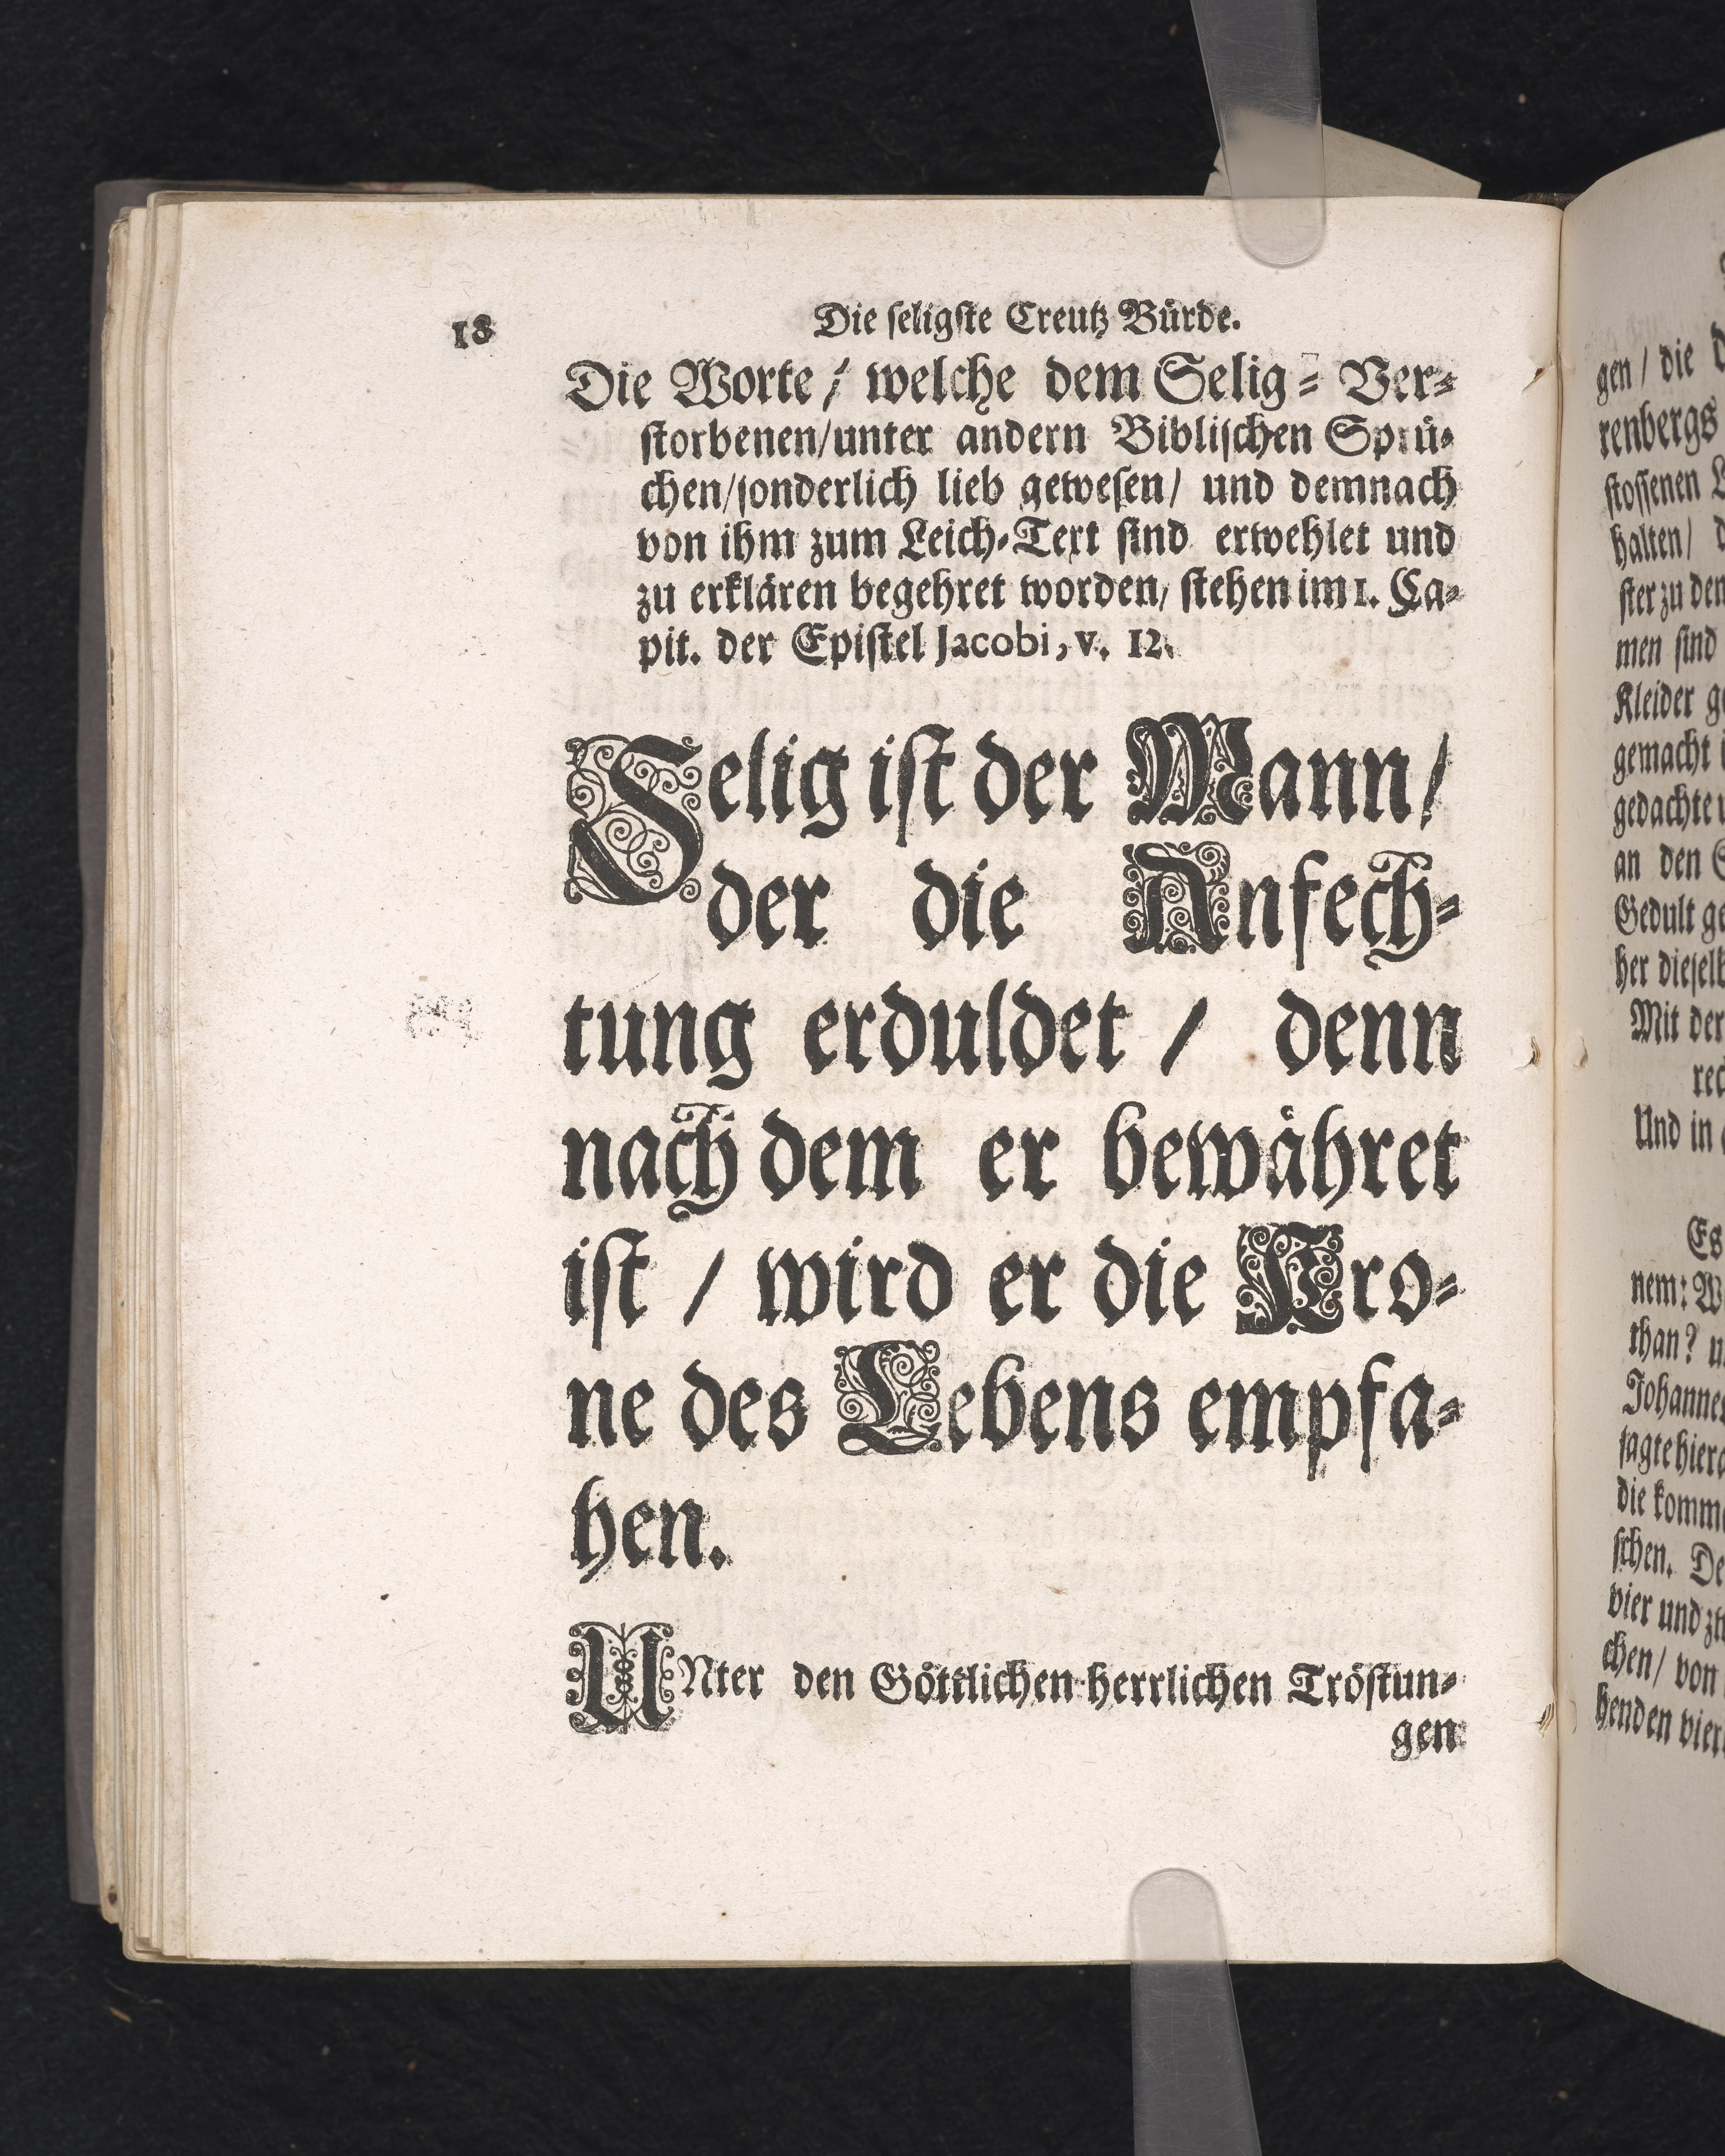 18
Die seligste Creutz Bürde.
Die Worte / welche dem Selig- Ver-
storbenen/unter andern Biblischen Sprü-
chen/sonderlich lieb gewesen/ und demnach
von ihm zum Leich-Text sind erwehlet und
zu erklären begehret worden/ stehen im 1. Ca-
pit. der Epistel Jacobi, v. 12.
Selig ist der Mann/
der die Anfech-
tung erduldet / denn
nach dem er bewähret
ist / wird er die Kro-
ne des Lebens empfa-
hen.
UNter den Göttlichen herrlichen Tröstun-
gen
gen / die
renbergs
stossenen
halten/
ster zu den
men sind
Kleider
gemacht
gedachte
an den
Gedult
her
Mit der
Und in
Es
nem:
than?
die
schen.
vier und
chen/ von
henden